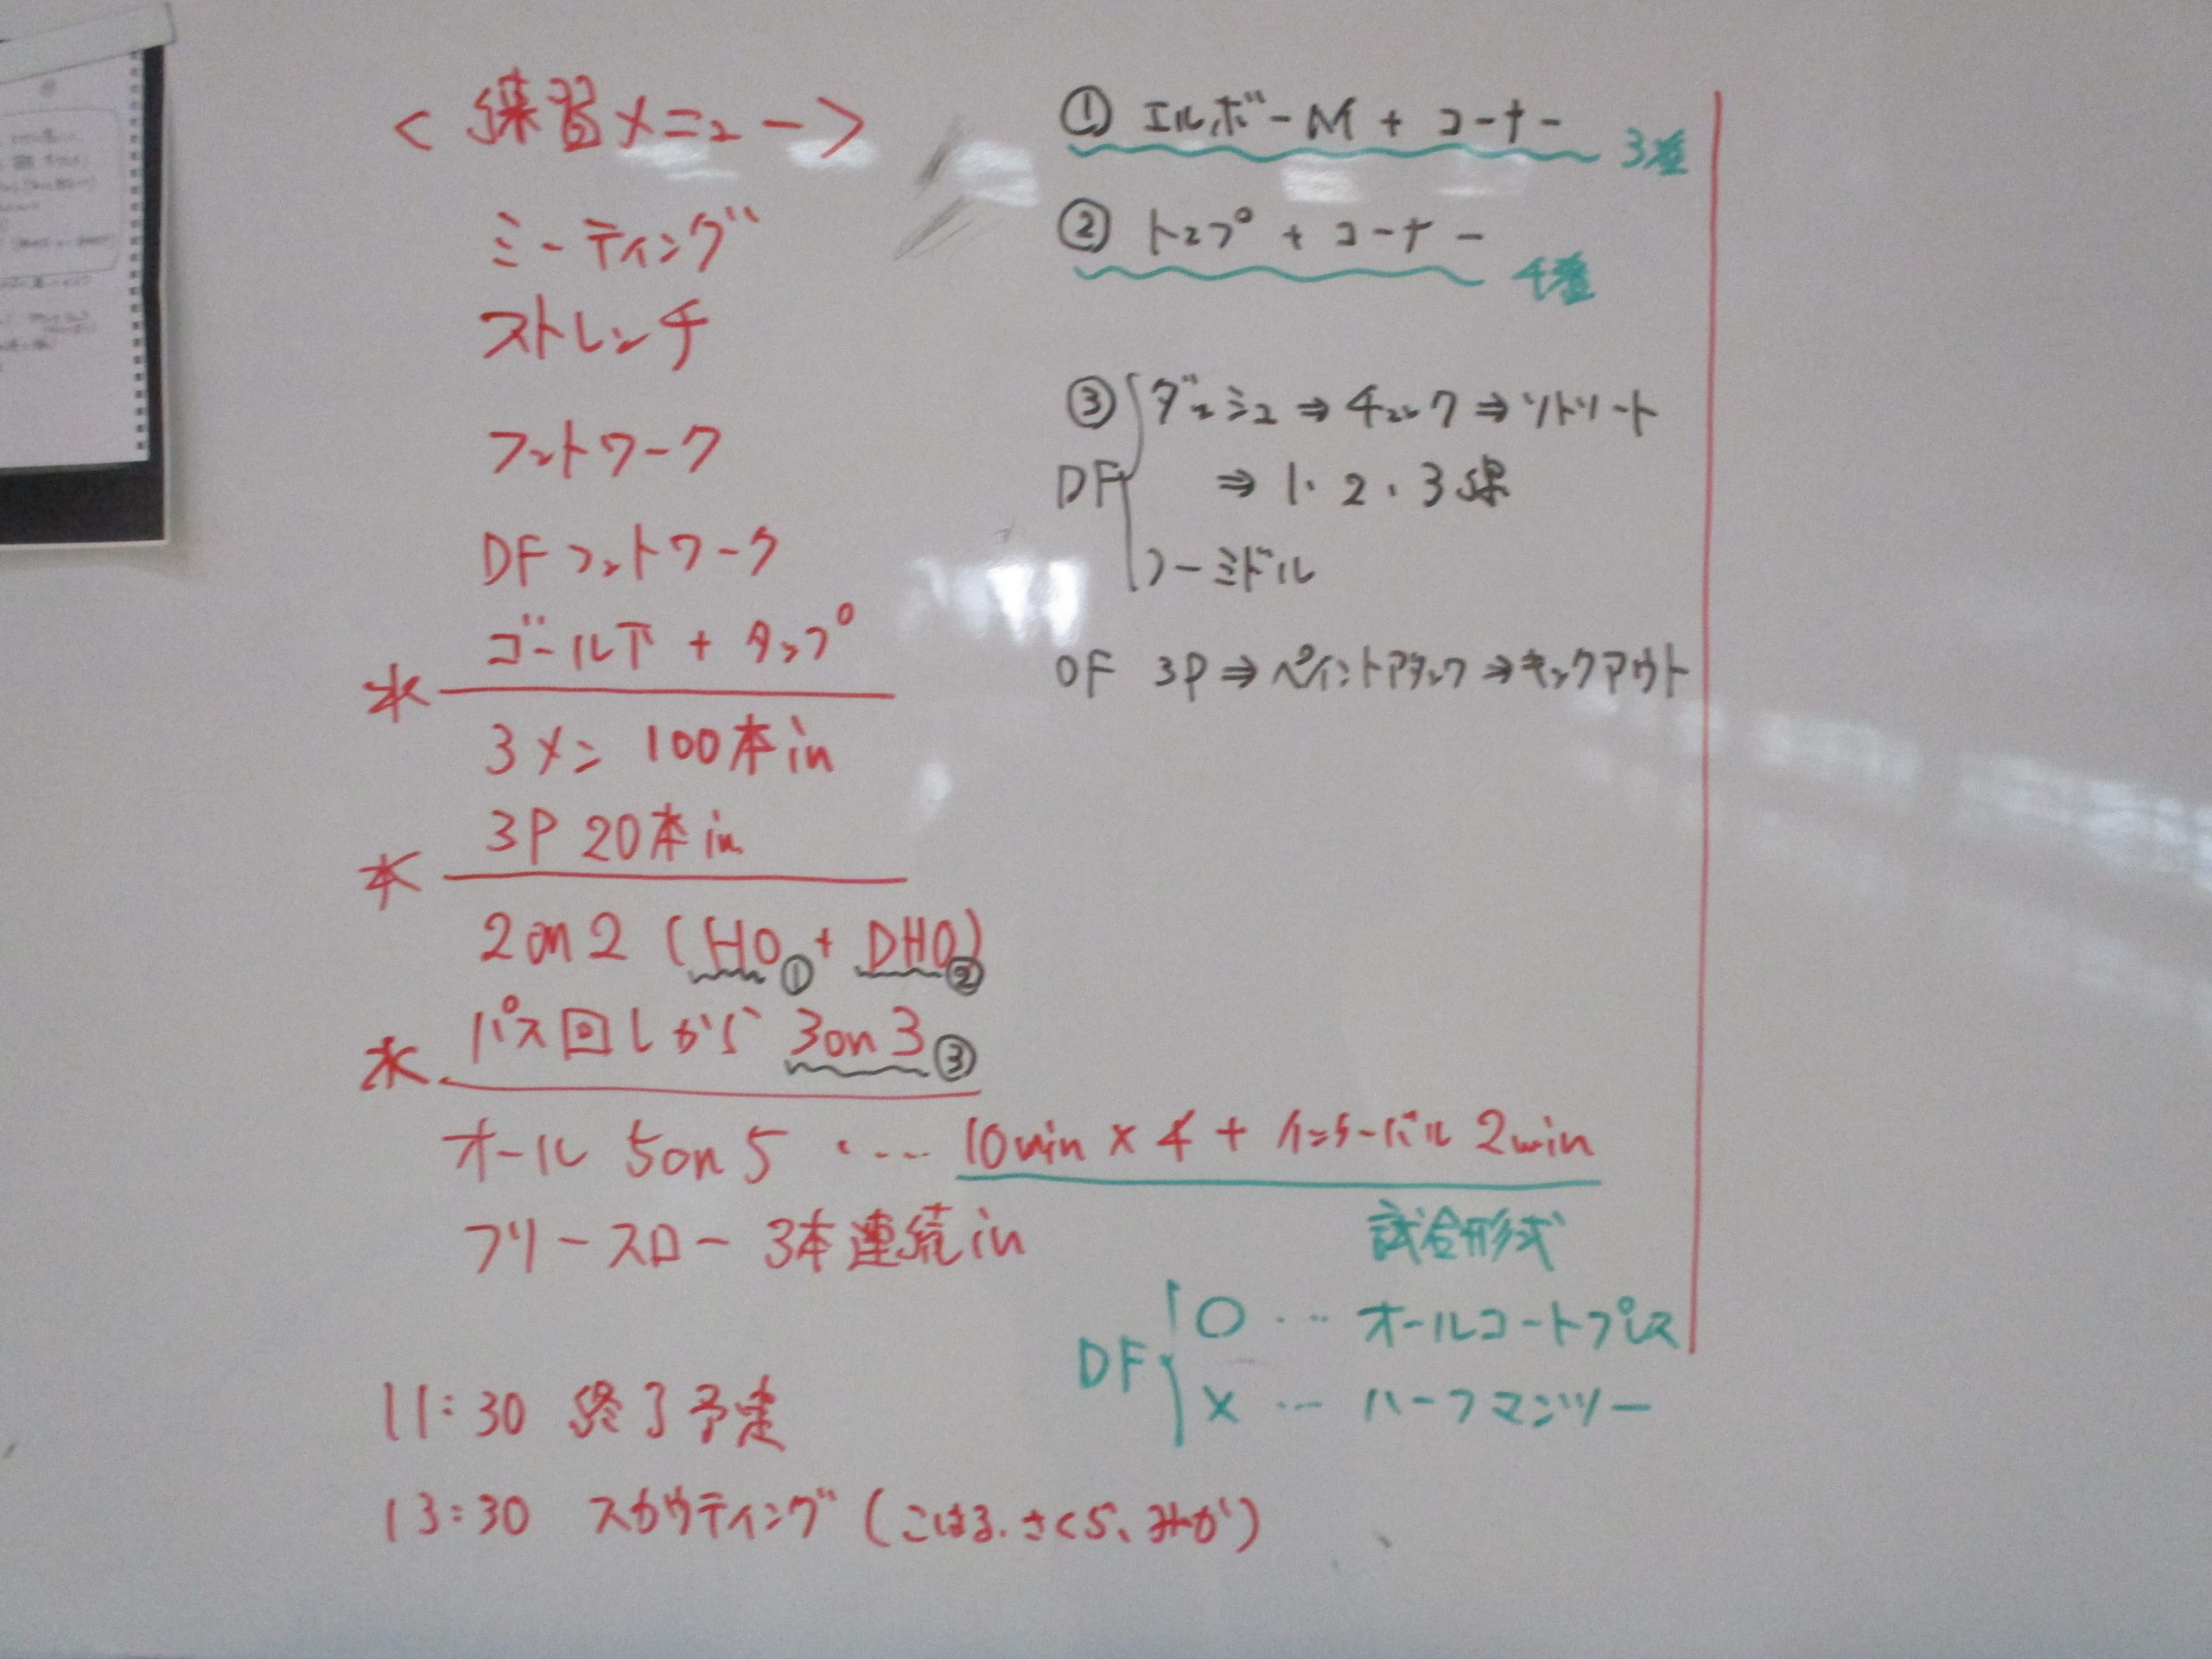 <練習メニュー>
ミーティング
ストレッチ
フットワーク
DFフットワーク
ゴール下 + タップ
水
3メン 100本in
3P 20本in
水
2on2 (HO① + DHO②)
パス回しから 3on3③
水
オール 5on5 ‥‥ 10min × 4 + インターバル 2min
試合形式
フリースロー 3本連続in
DF
○ ‥‥ オールコートプレス
× ‥‥ ハーフマンツー
11:30 終了予定
13:30 スカウティング (こはる、さくら、みか)
① エルボーM + コーナー 3種
② トップ + コーナー 4種
③ DF
ダッシュ ⇒ チェック ⇒ リトリート
⇒ 1.2.3線
ノーミドル
OF 3P ⇒ ペイントアタック ⇒ キックアウト